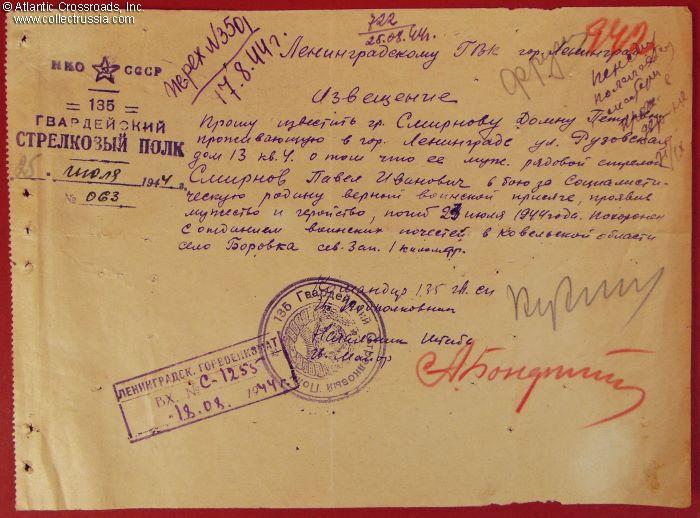 © Atlantic Crossroads, Inc.
www.collectrussia.com
722
25.08.44г.
942
перех N350/
17.8.44г.
Ленинградскому ГВК гор. Ленинград
НКО СССР
135
ГВАРДЕЙСКИЙ
СТРЕЛКОВЫЙ ПОЛК
25. июля 1944 г.
№ 063
Извещение
Прошу известить гр. Смирнову Домну
проживающую в гор. Ленинграде ул. Рузовская
дом 13 кв. 4. о том что ее муж. рядовой стрелок
Смирнов Павел Иванович в бою за Социалисти-
ческую родину верный воинской присяге, проявив
мужество и геройство, погиб 23 июля 1944 года. Похоронен
с отданием воинских почестей в Ковельской области
село Боровка сев. Зап. 1 километр.
Командир 135 гв. сп
гв. подполковник
Начальник Штаба
гв. Майор
135 Гвардейский Стрелковый Полк
ЛЕНИНГРАДСК. ГОРВОЕНКОМАТ
ВХ. № С-1255
18.08. 1944 г.